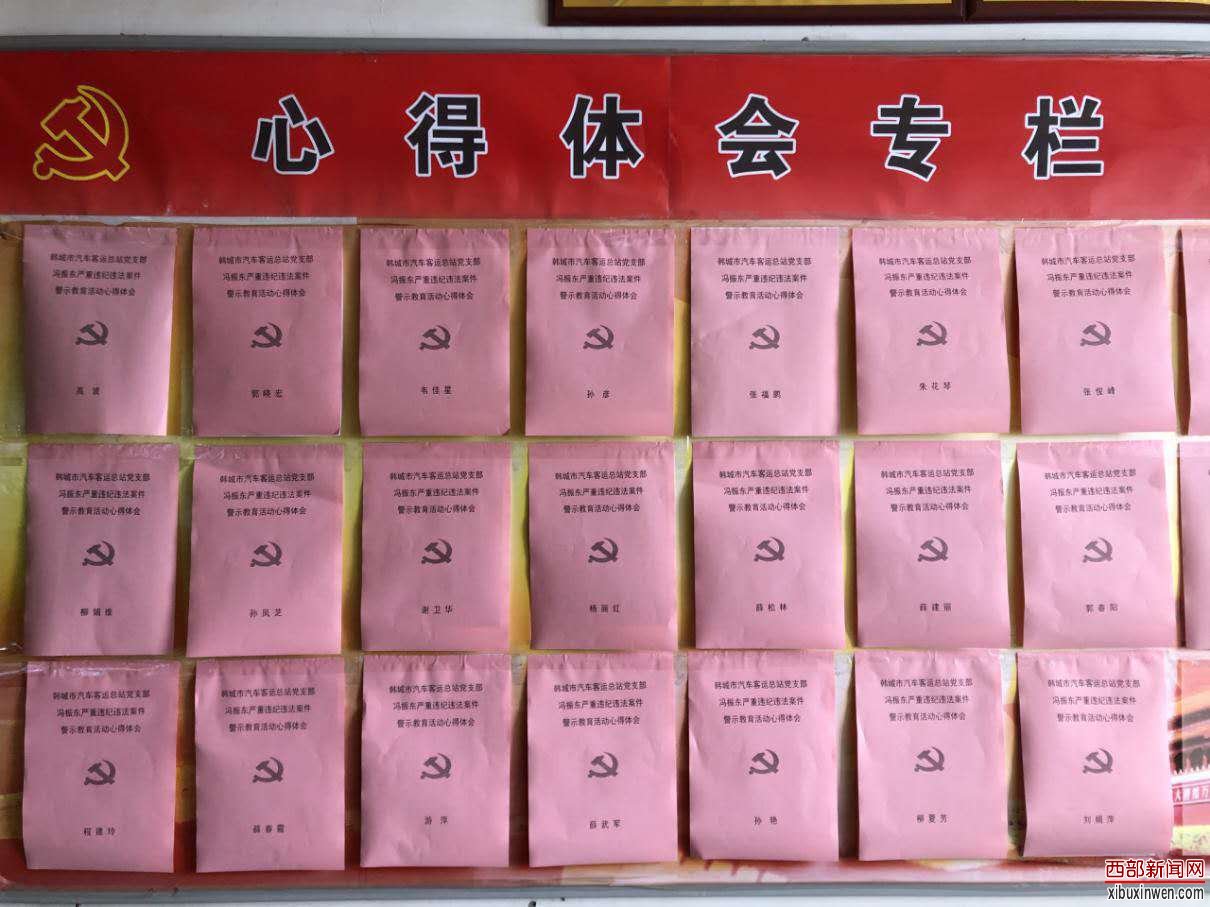 心得体会专栏
韩城市汽车客运总站党支部
冯振东严重违纪违法案件
警示教育活动心得体会
高波
韩城市汽车客运总站党支部
冯振东严重违纪违法案件
警示教育活动心得体会
郭晓宏
韩城市汽车客运总站党支部
冯振东严重违纪违法案件
警示教育活动心得体会
韦佳星
韩城市汽车客运总站党支部
冯振东严重违纪违法案件
警示教育活动心得体会
孙彦
韩城市汽车客运总站党支部
冯振东严重违纪违法案件
警示教育活动心得体会
张福鹏
韩城市汽车客运总站党支部
冯振东严重违纪违法案件
警示教育活动心得体会
朱花琴
韩城市汽车客运总站党支部
冯振东严重违纪违法案件
警示教育活动心得体会
张俊峰
韩城市汽车客运总站党支部
冯振东严重违纪违法案件
警示教育活动心得体会
柳娟维
韩城市汽车客运总站党支部
冯振东严重违纪违法案件
警示教育活动心得体会
孙凤芝
韩城市汽车客运总站党支部
冯振东严重违纪违法案件
警示教育活动心得体会
谢卫华
韩城市汽车客运总站党支部
冯振东严重违纪违法案件
警示教育活动心得体会
杨丽红
韩城市汽车客运总站党支部
冯振东严重违纪违法案件
警示教育活动心得体会
薛松林
韩城市汽车客运总站党支部
冯振东严重违纪违法案件
警示教育活动心得体会
薛建丽
韩城市汽车客运总站党支部
冯振东严重违纪违法案件
警示教育活动心得体会
郭春阳
韩城市汽车客运总站党支部
冯振东严重违纪违法案件
警示教育活动心得体会
程建玲
韩城市汽车客运总站党支部
冯振东严重违纪违法案件
警示教育活动心得体会
薛春霞
韩城市汽车客运总站党支部
冯振东严重违纪违法案件
警示教育活动心得体会
游萍
韩城市汽车客运总站党支部
冯振东严重违纪违法案件
警示教育活动心得体会
薛武军
韩城市汽车客运总站党支部
冯振东严重违纪违法案件
警示教育活动心得体会
孙艳
韩城市汽车客运总站党支部
冯振东严重违纪违法案件
警示教育活动心得体会
柳夏芳
韩城市汽车客运总站党支部
冯振东严重违纪违法案件
警示教育活动心得体会
刘娟萍
西部新闻网
xibuxinwen.com